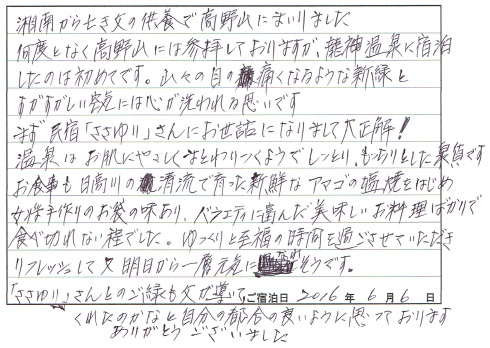 湘南から亡き父の供養で高野山にまいりました
何度となく高野山には参拝しておりますが、龍神温泉に宿泊
したのは初めてです。山々の目の痛くなるような新緑と
すがすがしい空気には心が洗われる思いです
まず民宿「ささゆり」さんにお世話になりまして大正解!
温泉はお肌にやさしくまとわりつくようでしっとり、もっちりとした泉質です
お食事も日高川の清流で育った新鮮なアマゴの塩焼をはじめ
女将手作りのお袋の味あり、バラエティに富んだ美味しいお料理ばかりで
食べ切れない程でした。ゆっくりと至福の時間を過ごさせていただき
リフレッシュして又明日から一層元気になれそうです。
「ささゆり」さんとのご縁も父が導いて ご宿泊日 2016年6月6日
くれたのかなと自分の都合の良いように思っております
ありがとうございました